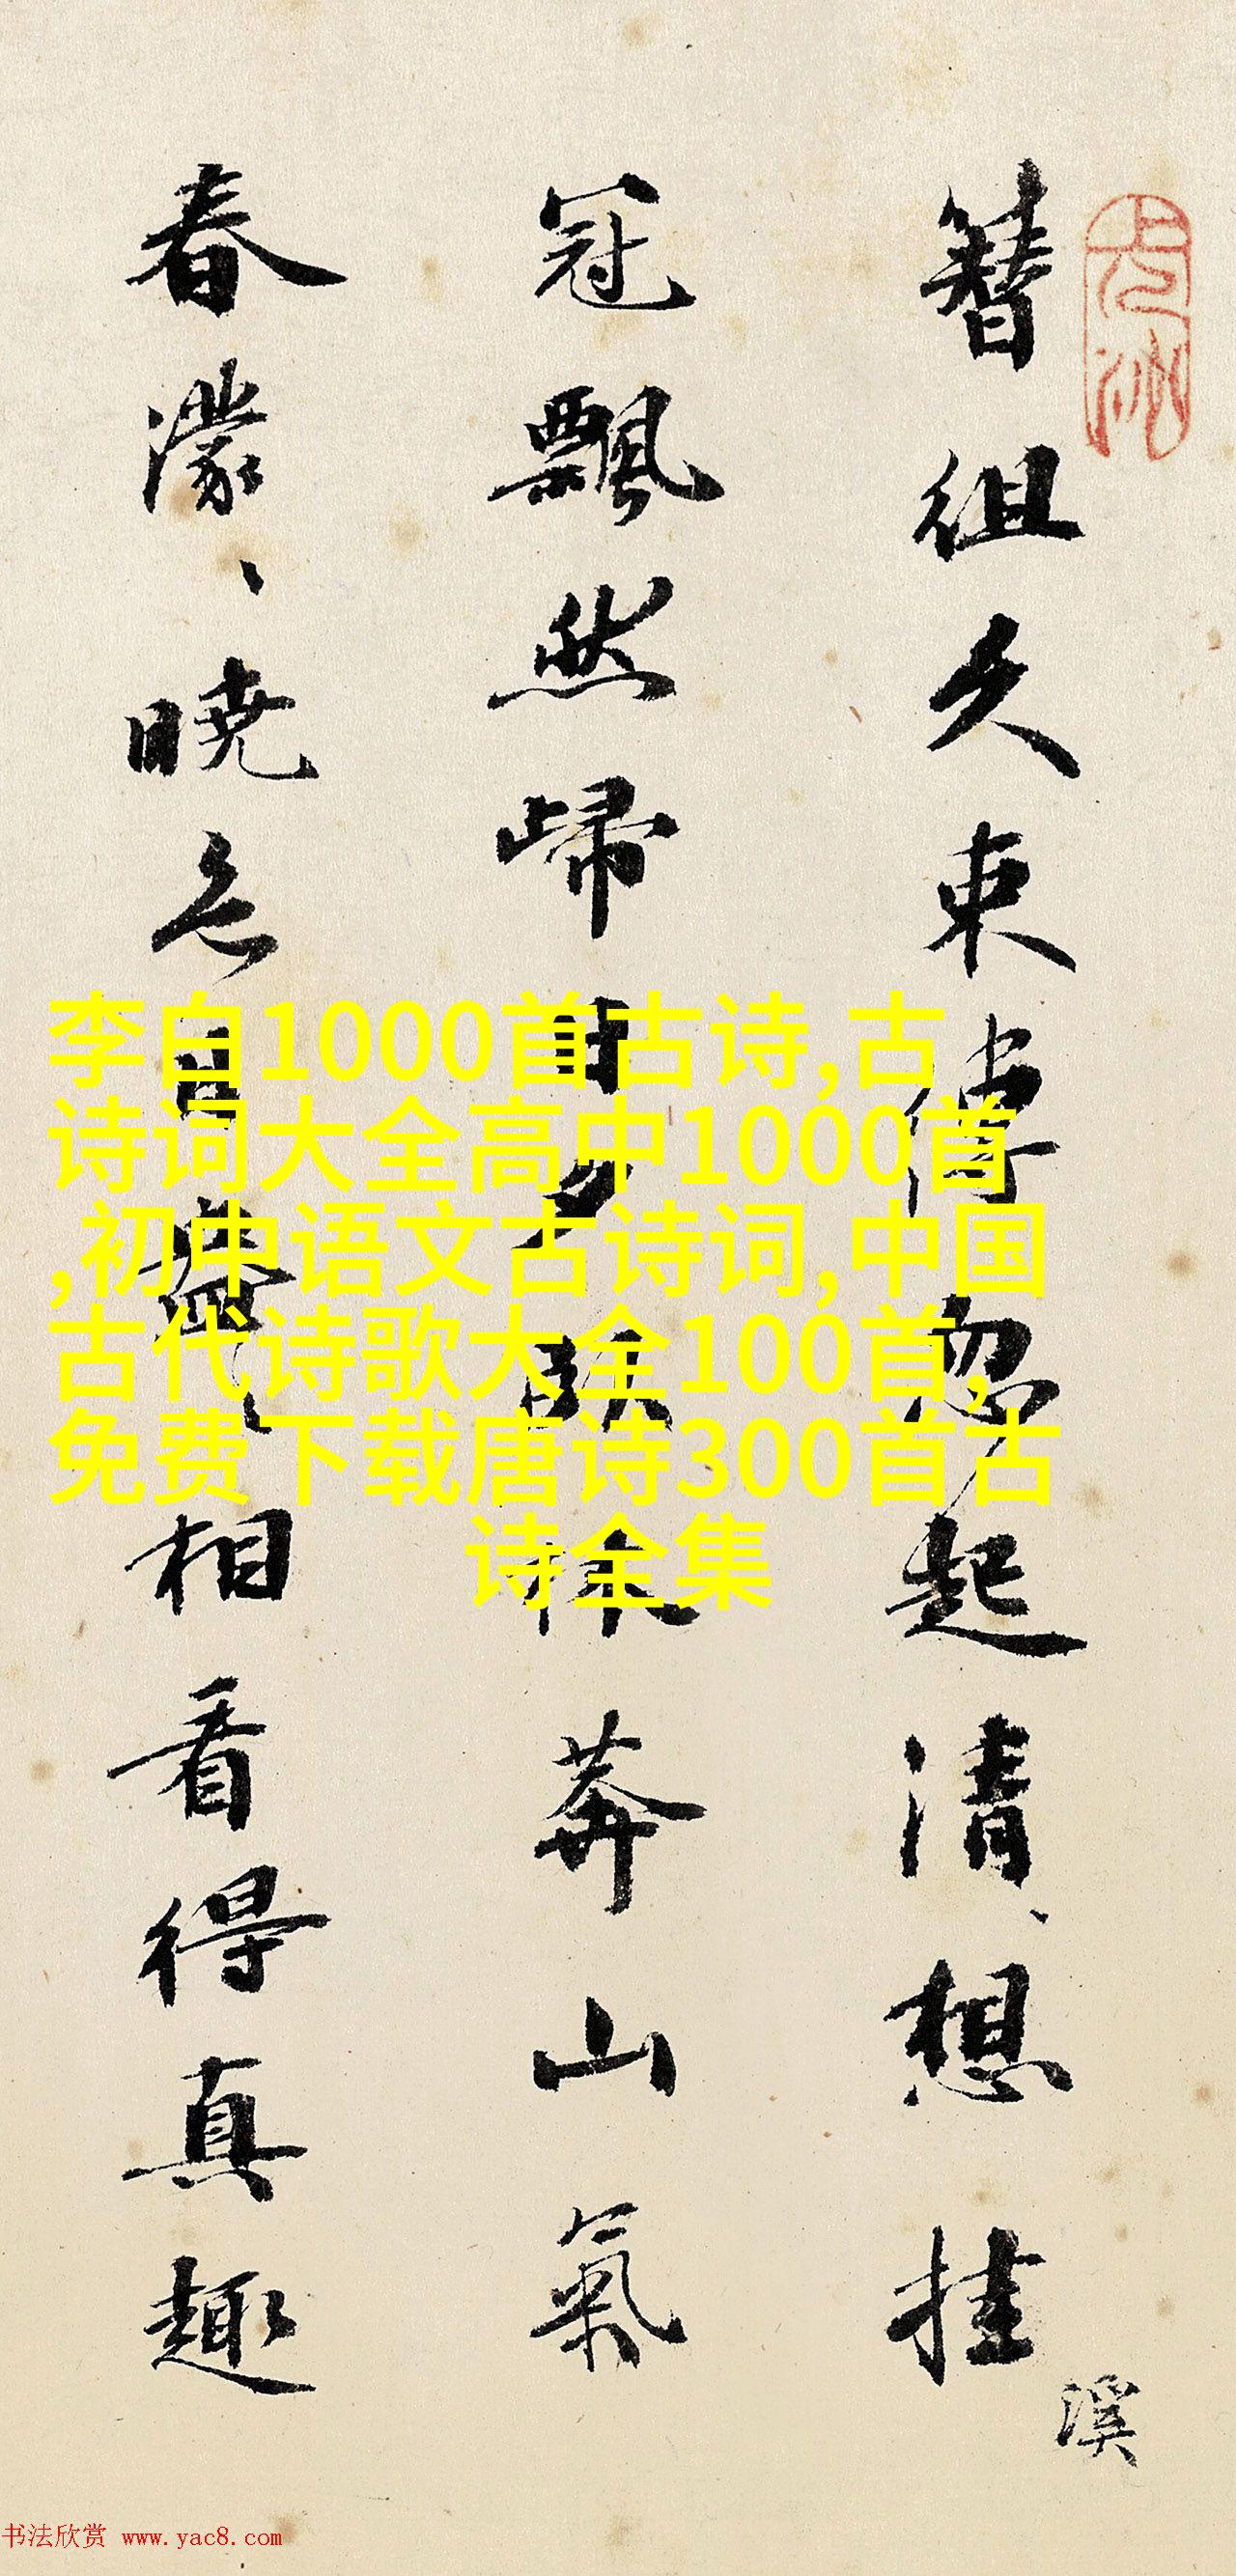 簪组久束缚忽起清、想挂
冠飘然歸日夕眺林莽山氣
春濛、曉色自相看得真趣
溪
李白1000首古诗,古
诗词大全高中1000首
,初中语文古诗词,中国
古代诗歌大全100首,
免费下载唐诗300首古
诗全集
书法欣赏 www.yac8.com